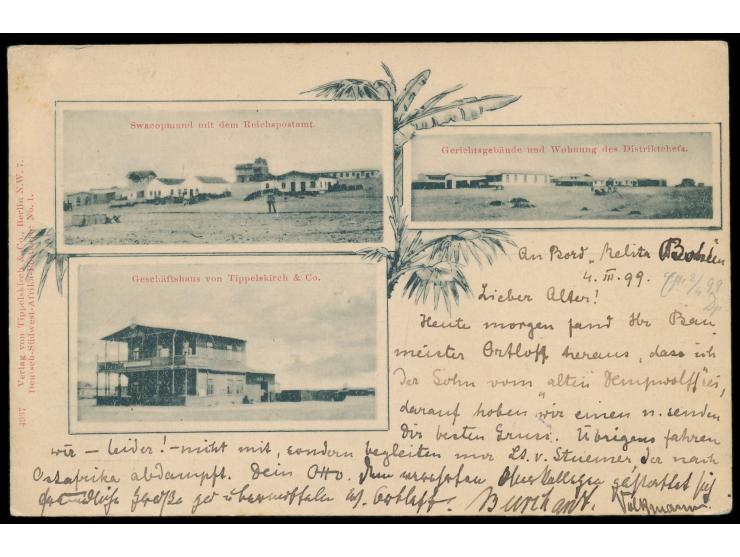 Swacopmund mit dem Reichspostamt.
Gerichtsgebäude und Wohnung des Distriktchefs.
Geschäftshaus von Tippelskirch & Co.
4937 Verlag von Tippelskirch & Co., Berlin N.W. 7.
Deutsch-Südwest-Afrika No. 1.
An Bord „Melita Bohlen
4. III. 99.
Lieber Alter!
Heute morgen fand Hr Bau-
meister Ortloff heraus, dass ich
der Sohn vom „alten Dempwolff" sei,
darauf hoben wir einen u. senden
Dir besten Gruss. Übrigens fahren
wir – leider! – nicht mit, sondern begleiten nur Lt. v. Stuemer der nach
Ostafrika abdampft. Dein Otto. Dem verehrten gestattet sich
freundliche Grüße zu übermitteln Ortloff. Burchardt. Volkmann.